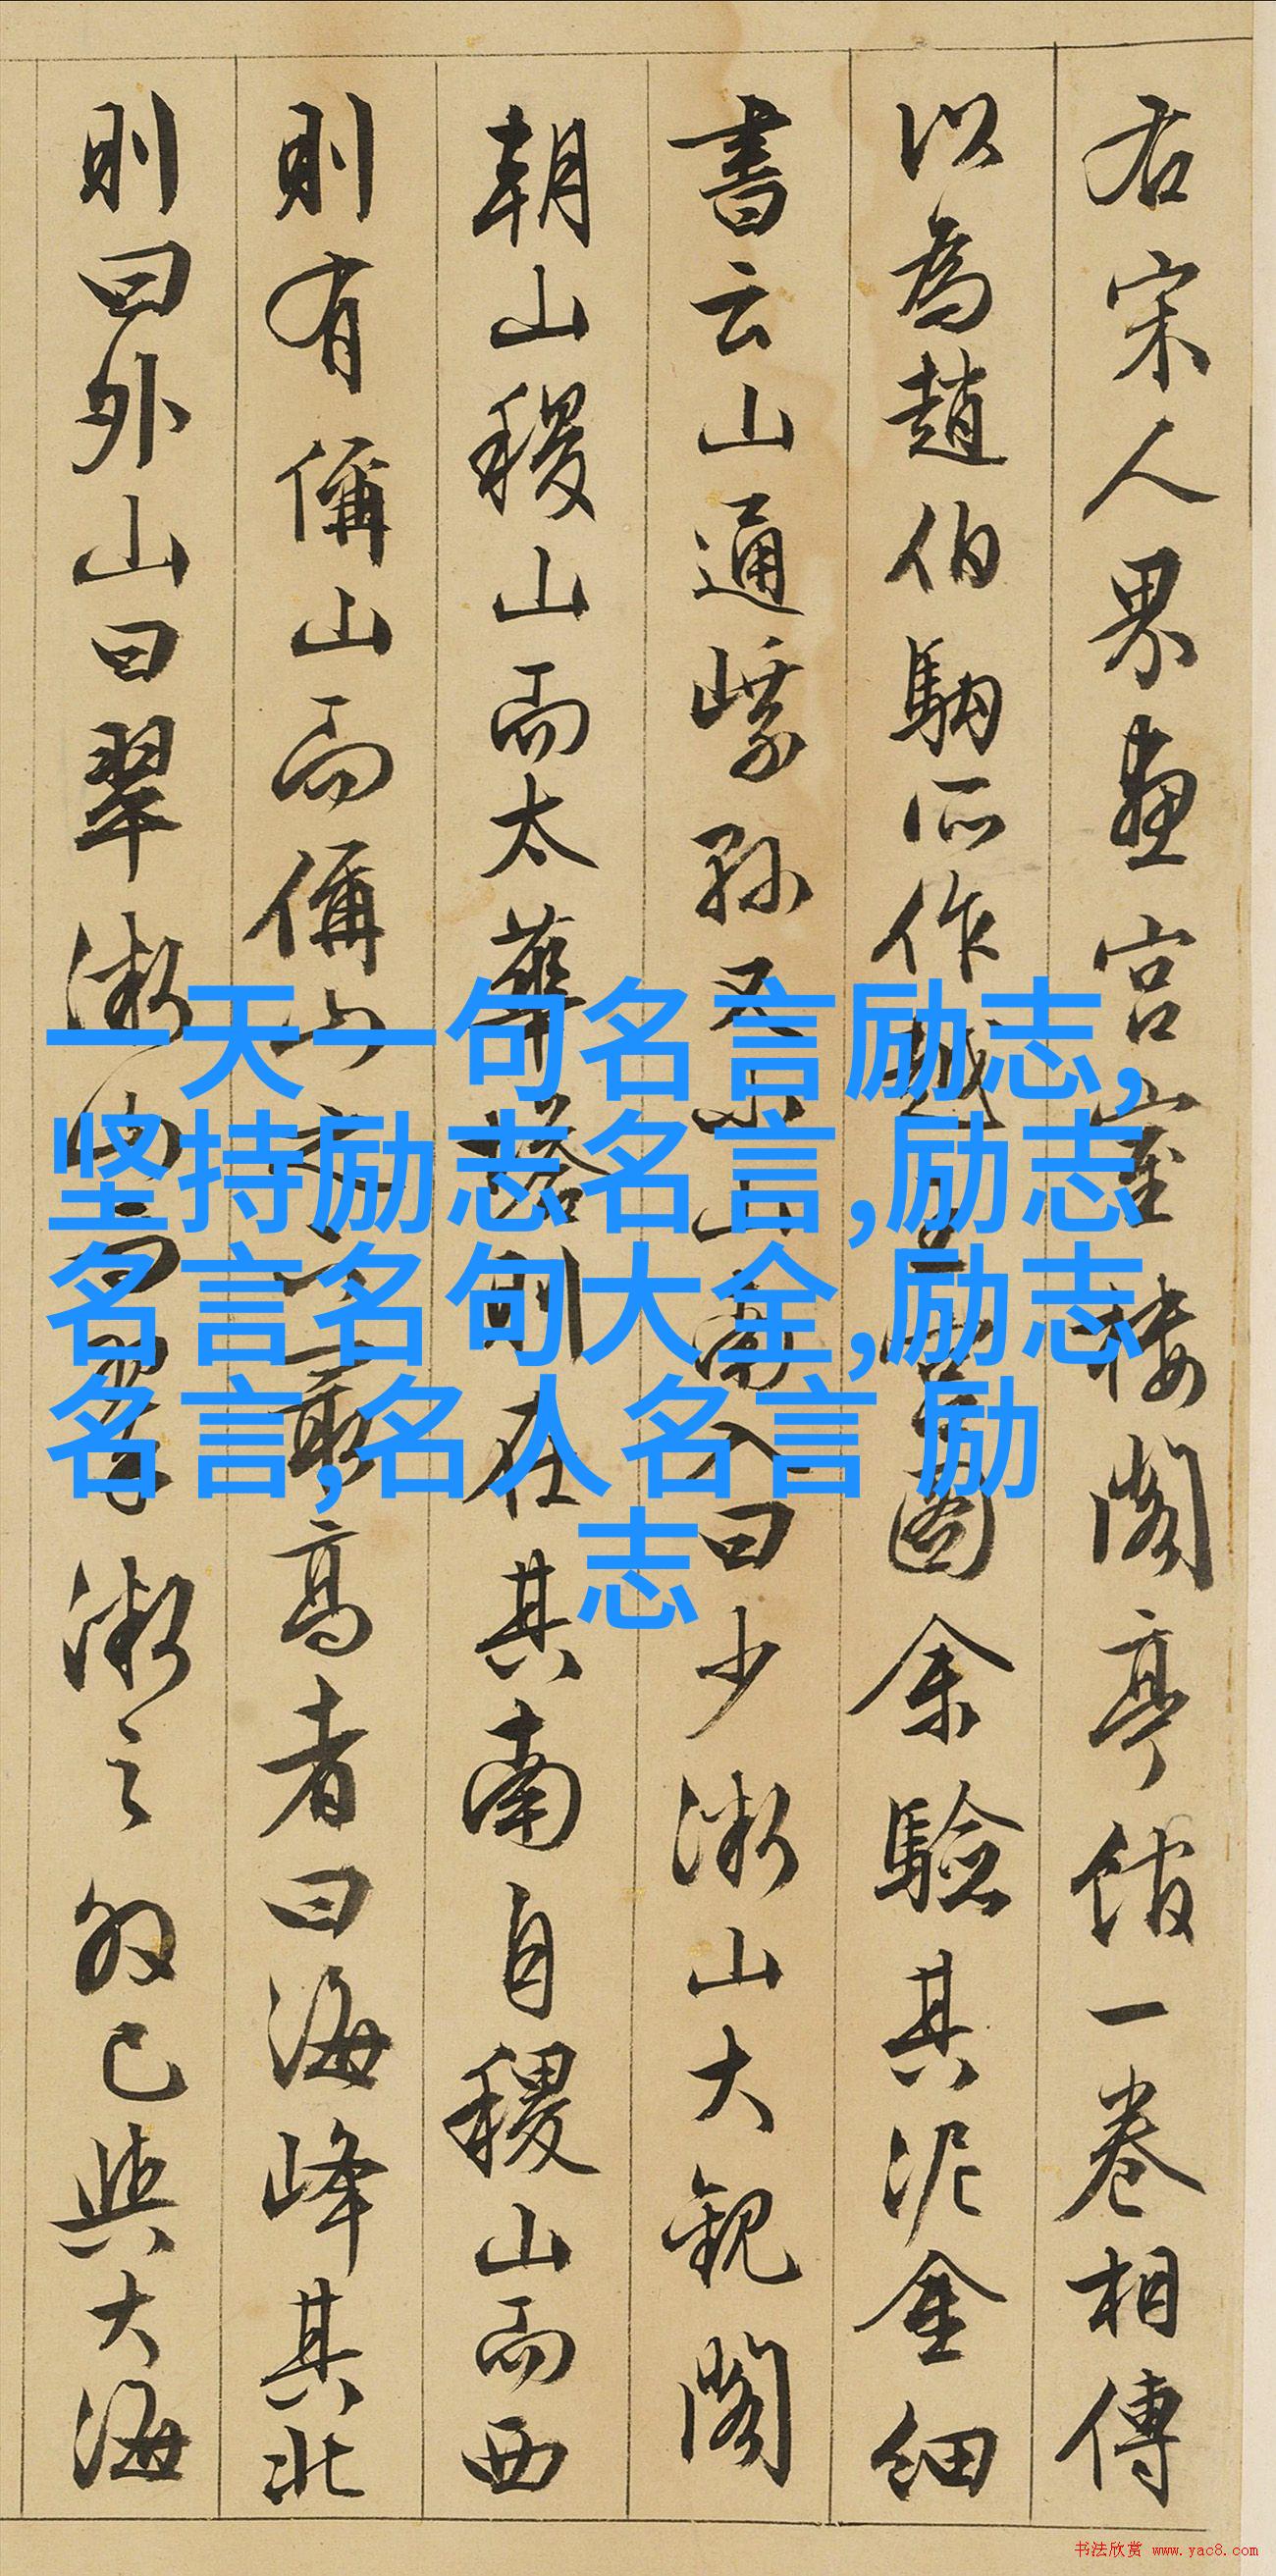 右宋人界畫宮室樓閣亭館一卷相傳
以為趙伯駒所作越王圖余驗其泥金細
書云山通又山南入曰少微山大觀閣
朝山稷山而太華塔則在其南自稷山而西
則有偁山而偁山之最高者曰海峰其北
則曰外山曰翠微山微之已與大海
一天一句名言励志,
坚持励志名言,励志
名言名句大全,励志
名言,名人名言 励
志
书法欣赏 www.yac8.com